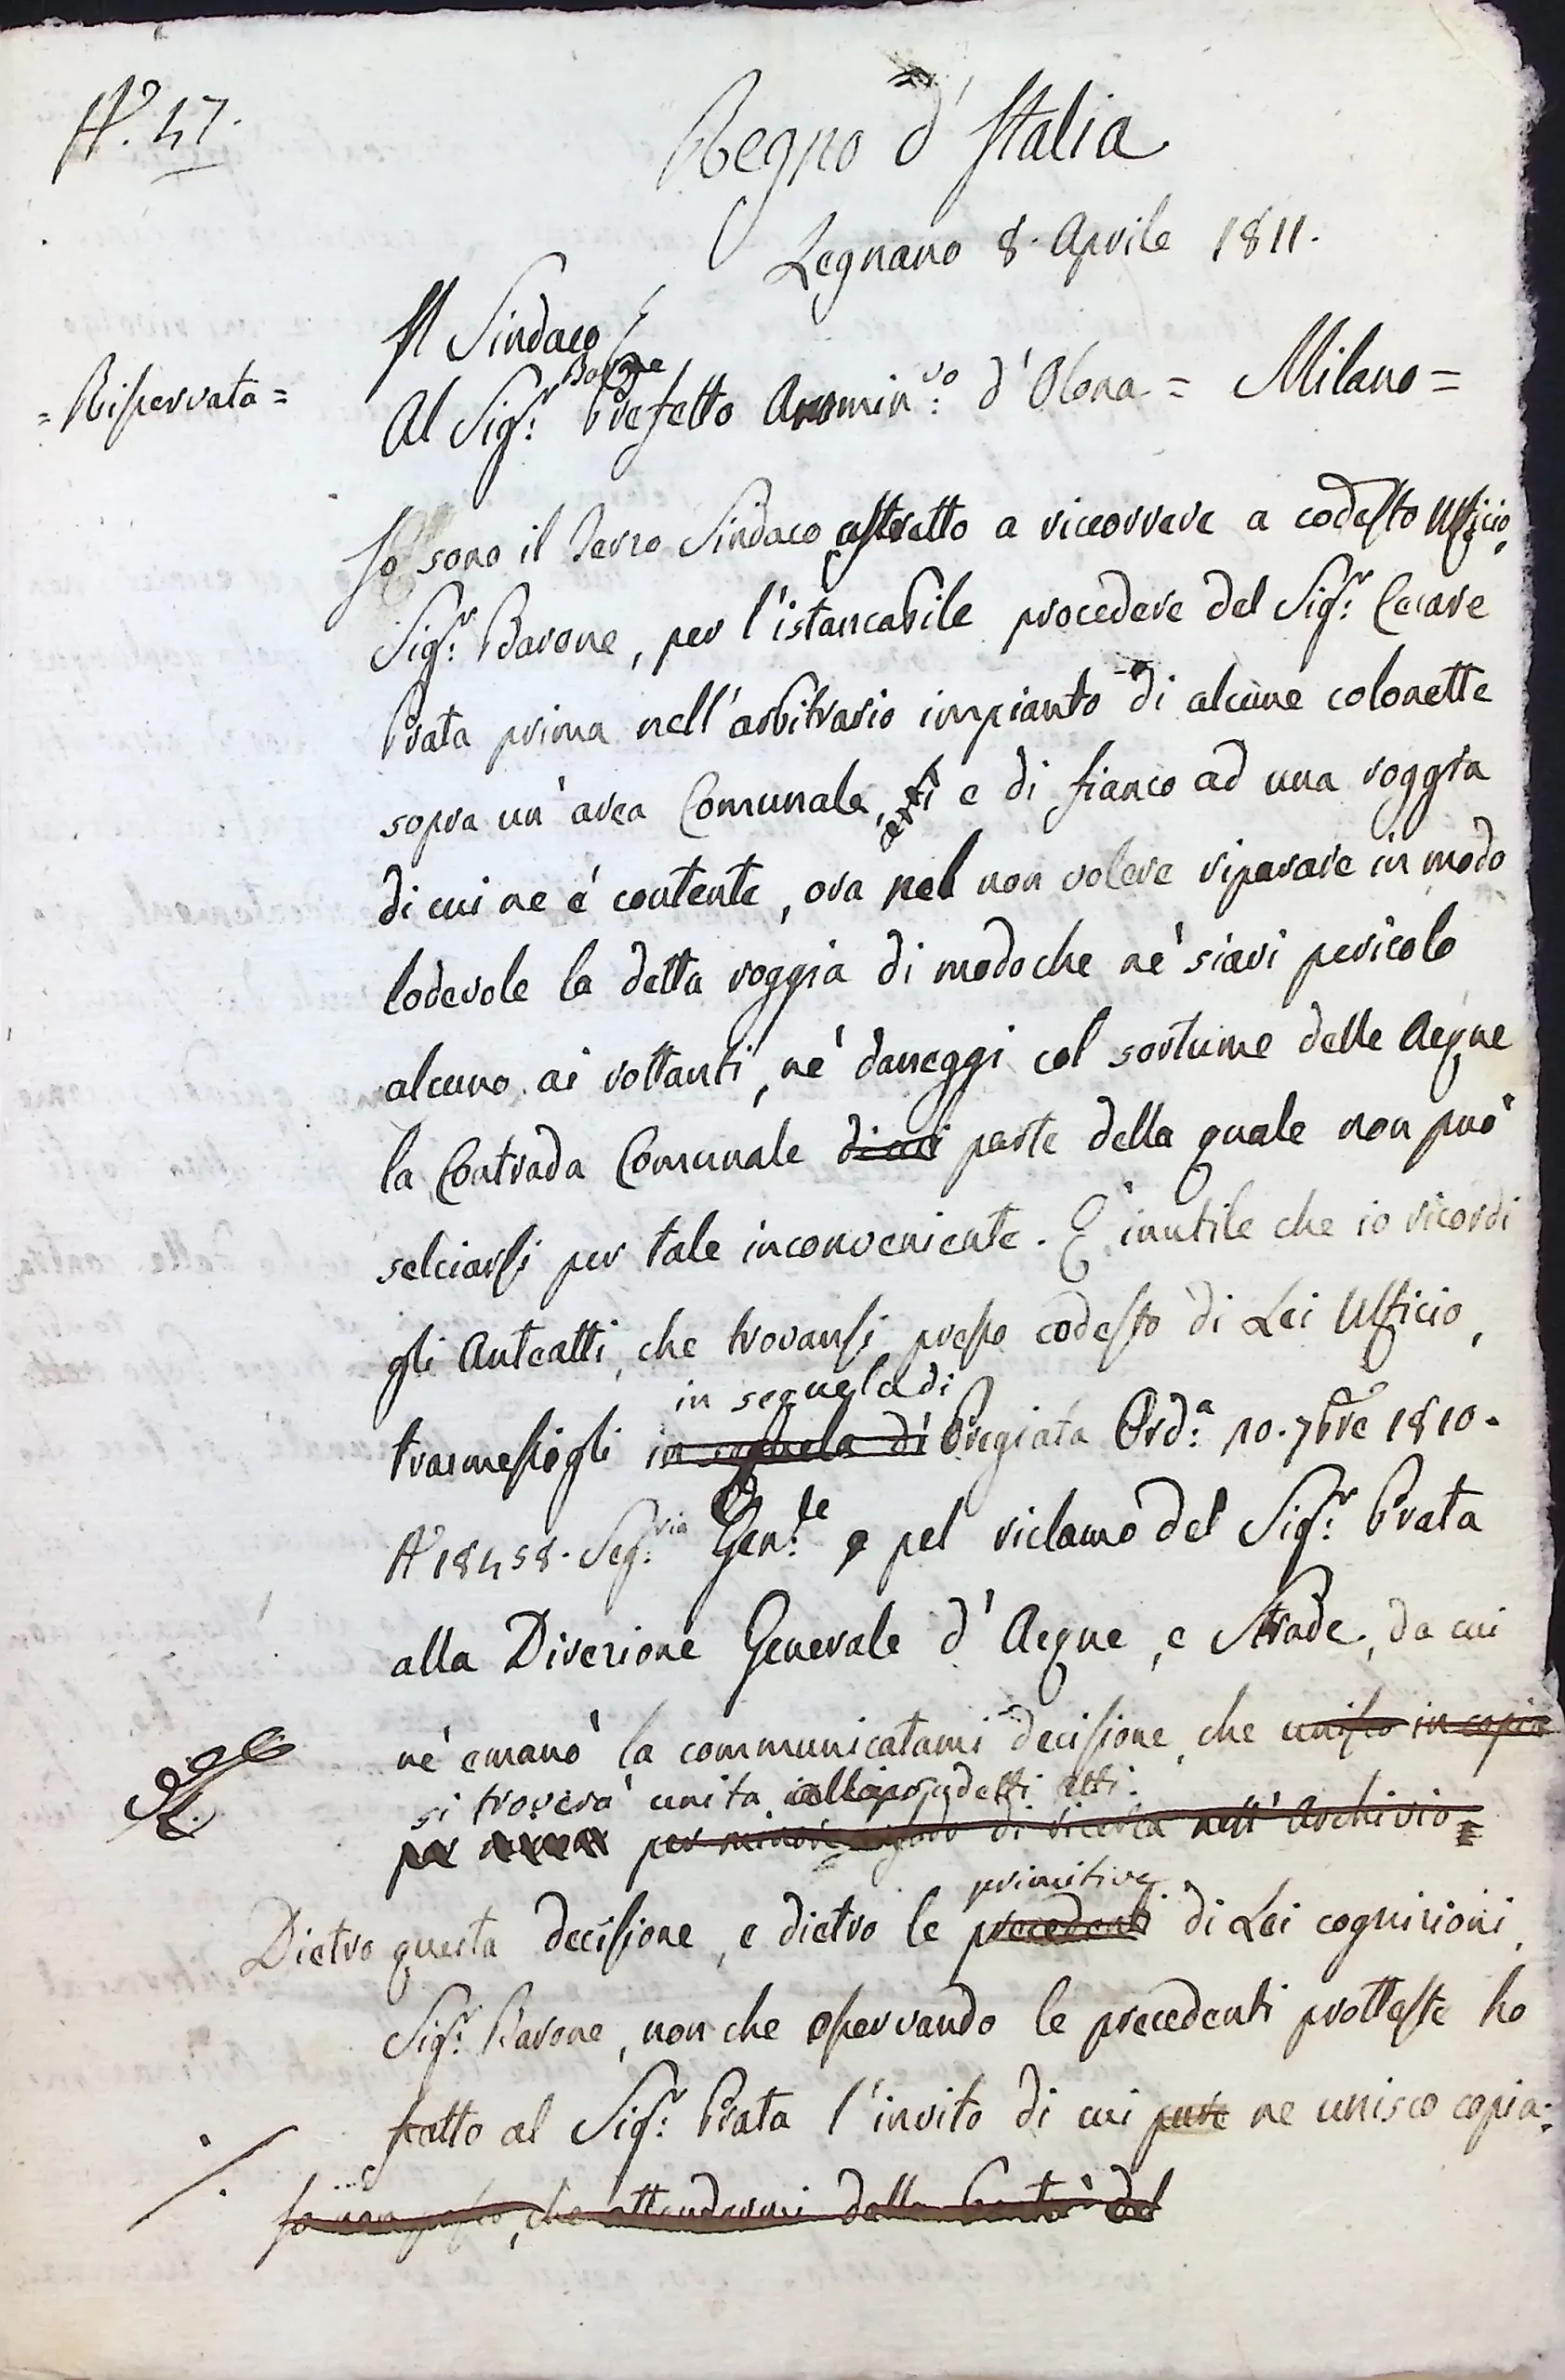 N.° 47.
Regno d'Italia
Legnano 8. Aprile 1811.
Il Sindaco
= Riservata =
Barone
Al Sig.r Prefetto Ammin.vo d'Olona = Milano =
Io sono il terzo Sindaco astretto a ricorrere a codesto Uffizio,
Sig.r Barone, per l'istancabile procedere del Sig.r Cesare
Prata prima nell'arbitrario impianto di alcune colonette
sopra un'area Comunale, e di fianco ad una roggia
di cui ne è contente, ora nel non volere riparare in modo
lodevole la detta roggia di modo che nè siavi pericolo
alcuno ai rottanti, nè daneggi col sortume delle Acque
la Contrada Comunale di cui parte della quale non può
selciarsi per tale inconveniente. È inutile che io ricordi
gli Anteatti, che trovansi presso codesto di Lei Ufficio,
in seguela di
trasmessogli in seguela di Pregiata Ord.a 10. 7bre 1810.
N° 18458. Seg.ria Gen.le e pel riclamo del Sig.r Prata
alla Direzione Generale d'Acque, e Strade, da cui
nè emanò la communicatami decisione, che unisco in copia
si troverà unita sudetti atti.
per minore di ricerca nell'Archivio =
primitive
Dietro questa decisione, e dietro le precedenti di Lei cognizioni,
Sig.r Barone, non che osservando le precedenti protteste ho
fatto al Sig.r Prata l'invito di cui pure ne unisco copia:
che attendermi dalla Bontà del